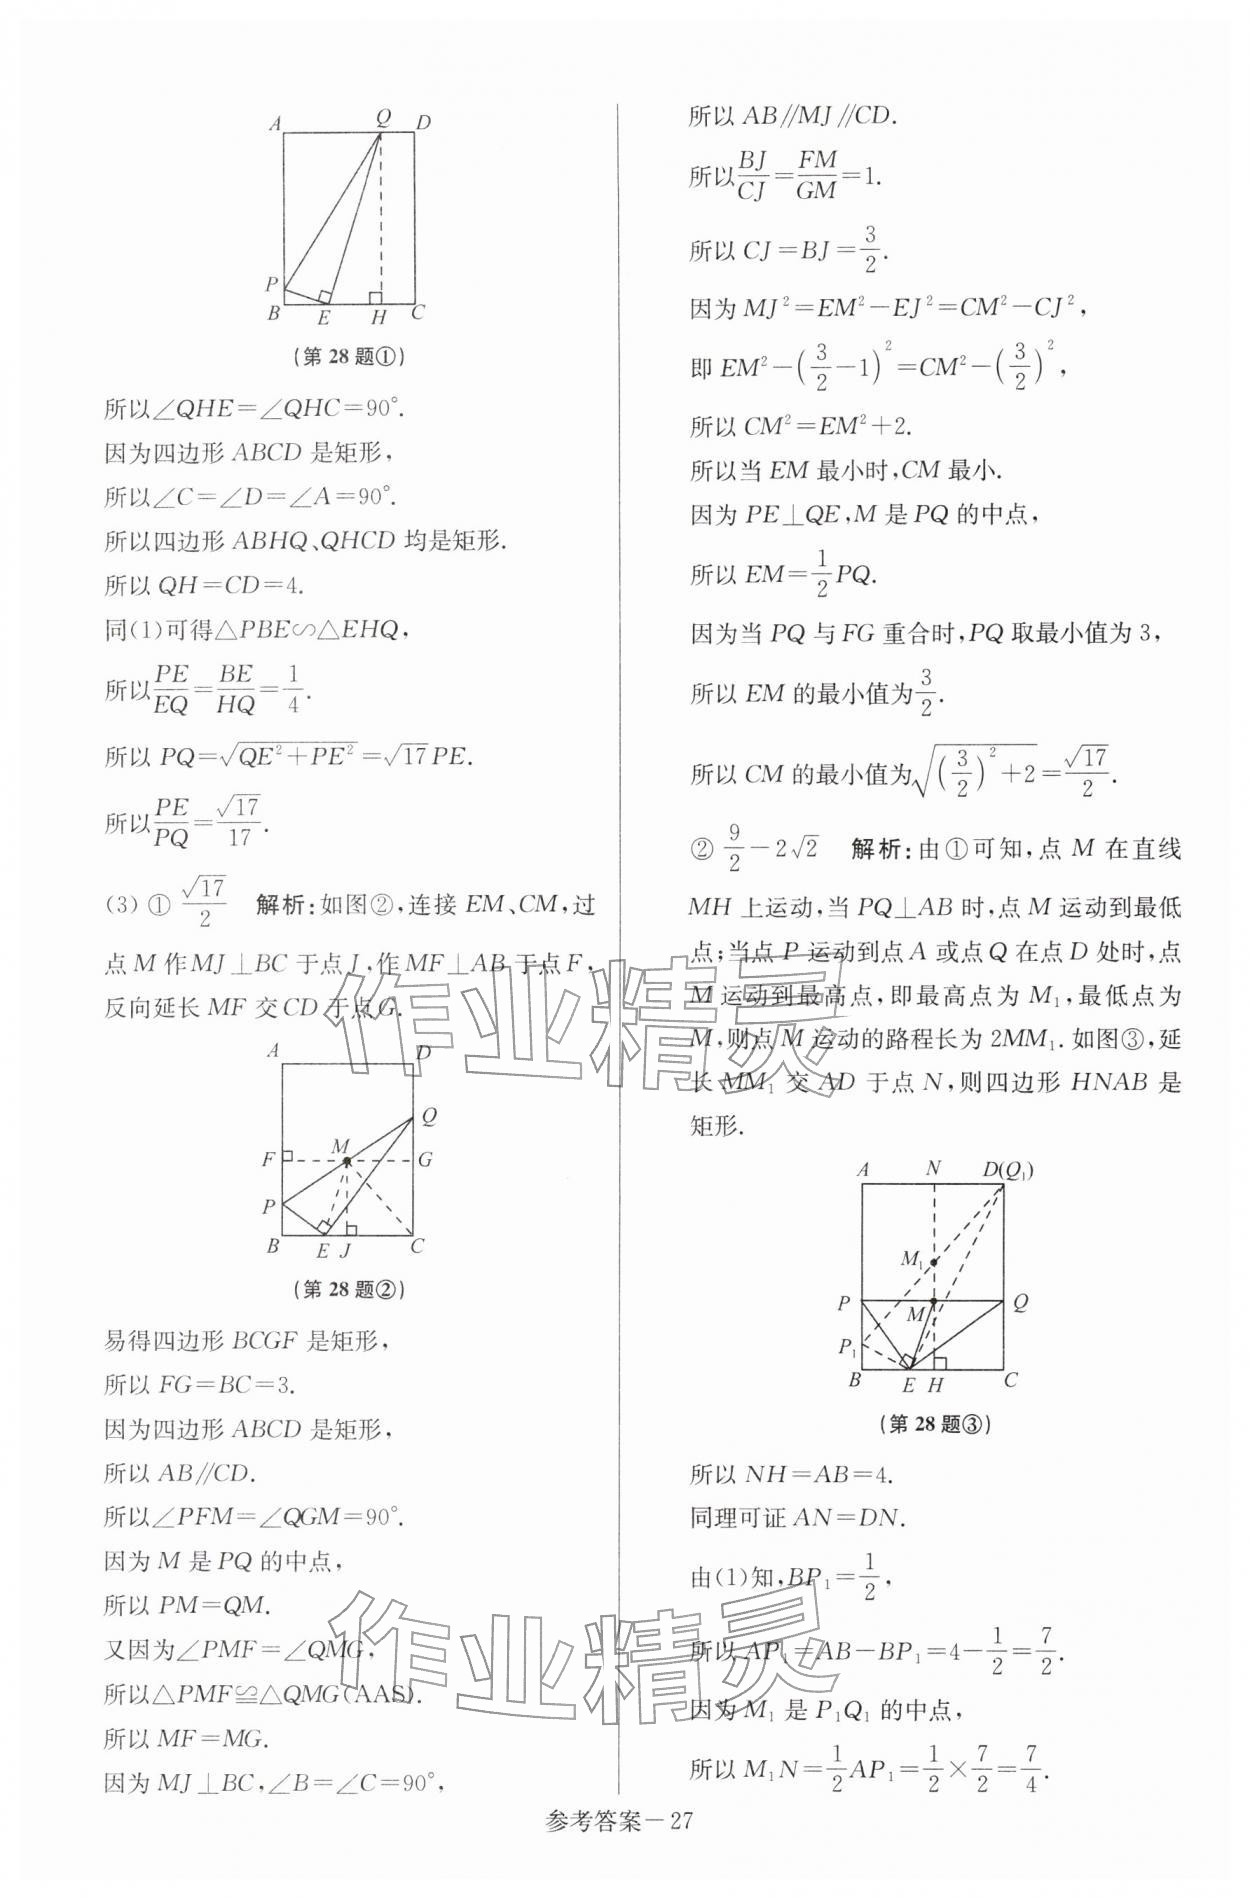 A Q D
P
B E H C
(第 28 题①)
所以∠QHE=∠QHC=90°.
因为四边形 ABCD 是矩形,
所以∠C=∠D=∠A=90°.
所以四边形 ABHQ、QHCD 均是矩形.
所以 QH=CD=4.
同(1)可得△PBE∽△EHQ,
所以PE/EQ=BE/HQ=1/4.
所以 PQ=√(QE²+PE²)=√17PE.
所以PE/PQ=√17/17.
(3) ① √17/2 解析:如图②,连接 EM、CM,过
点 M 作MJ⊥BC 于点J,作MF⊥AB 于点F,
反向延长 MF 交CD 于点G.
A D
Q
F M G
P
B E J C
(第 28 题②)
易得四边形 BCGF 是矩形,
所以 FG=BC=3.
因为四边形 ABCD 是矩形,
所以 AB∥CD.
所以∠PFM=∠QGM=90°.
因为 M 是 PQ 的中点,
所以 PM=QM.
又因为∠PMF=∠QMG,
所以△PMF≌△QMG(AAS).
所以 MF=MG.
因为 MJ⊥BC,∠B=∠C=90°,
所以 AB∥MJ∥CD.
所以BJ/CJ=FM/GM=1.
所以 CJ=BJ=3/2.
因为 MJ²=EM²-EJ²=CM²-CJ²,
即 EM²-(3/2-1)²=CM²-(3/2)²,
所以 CM²=EM²+2.
所以当 EM 最小时,CM 最小.
因为 PE⊥QE,M 是 PQ 的中点,
所以 EM=1/2PQ.
因为当 PQ 与 FG 重合时,PQ 取最小值为 3,
所以 EM 的最小值为3/2.
所以 CM 的最小值为√((3/2)²+2)=√17/2.
② 9/2-2√2 解析:由①可知,点 M 在直线
MH 上运动,当 PQ⊥AB 时,点 M 运动到最低
点;当点 P 运动到点 A 或点 Q 在点 D 处时,点
M 运动到最高点,即最高点为 M₁,最低点为
M,则点 M 运动的路程长为 2MM₁.如图③,延
长 MM₁ 交 AD 于点 N,则四边形 HNAB 是
矩形.
A N D(Q₁)
M₁
P M Q
P₁
B E H C
(第 28 题③)
所以 NH=AB=4.
同理可证 AN=DN.
由(1)知,BP₁=1/2,
所以 AP₁=AB-BP₁=4-1/2=7/2.
因为 M₁ 是 P₁Q₁ 的中点,
所以 M₁N=1/2AP₁=1/2×7/2=7/4.
参考答案-27
作业精灵
作业精灵